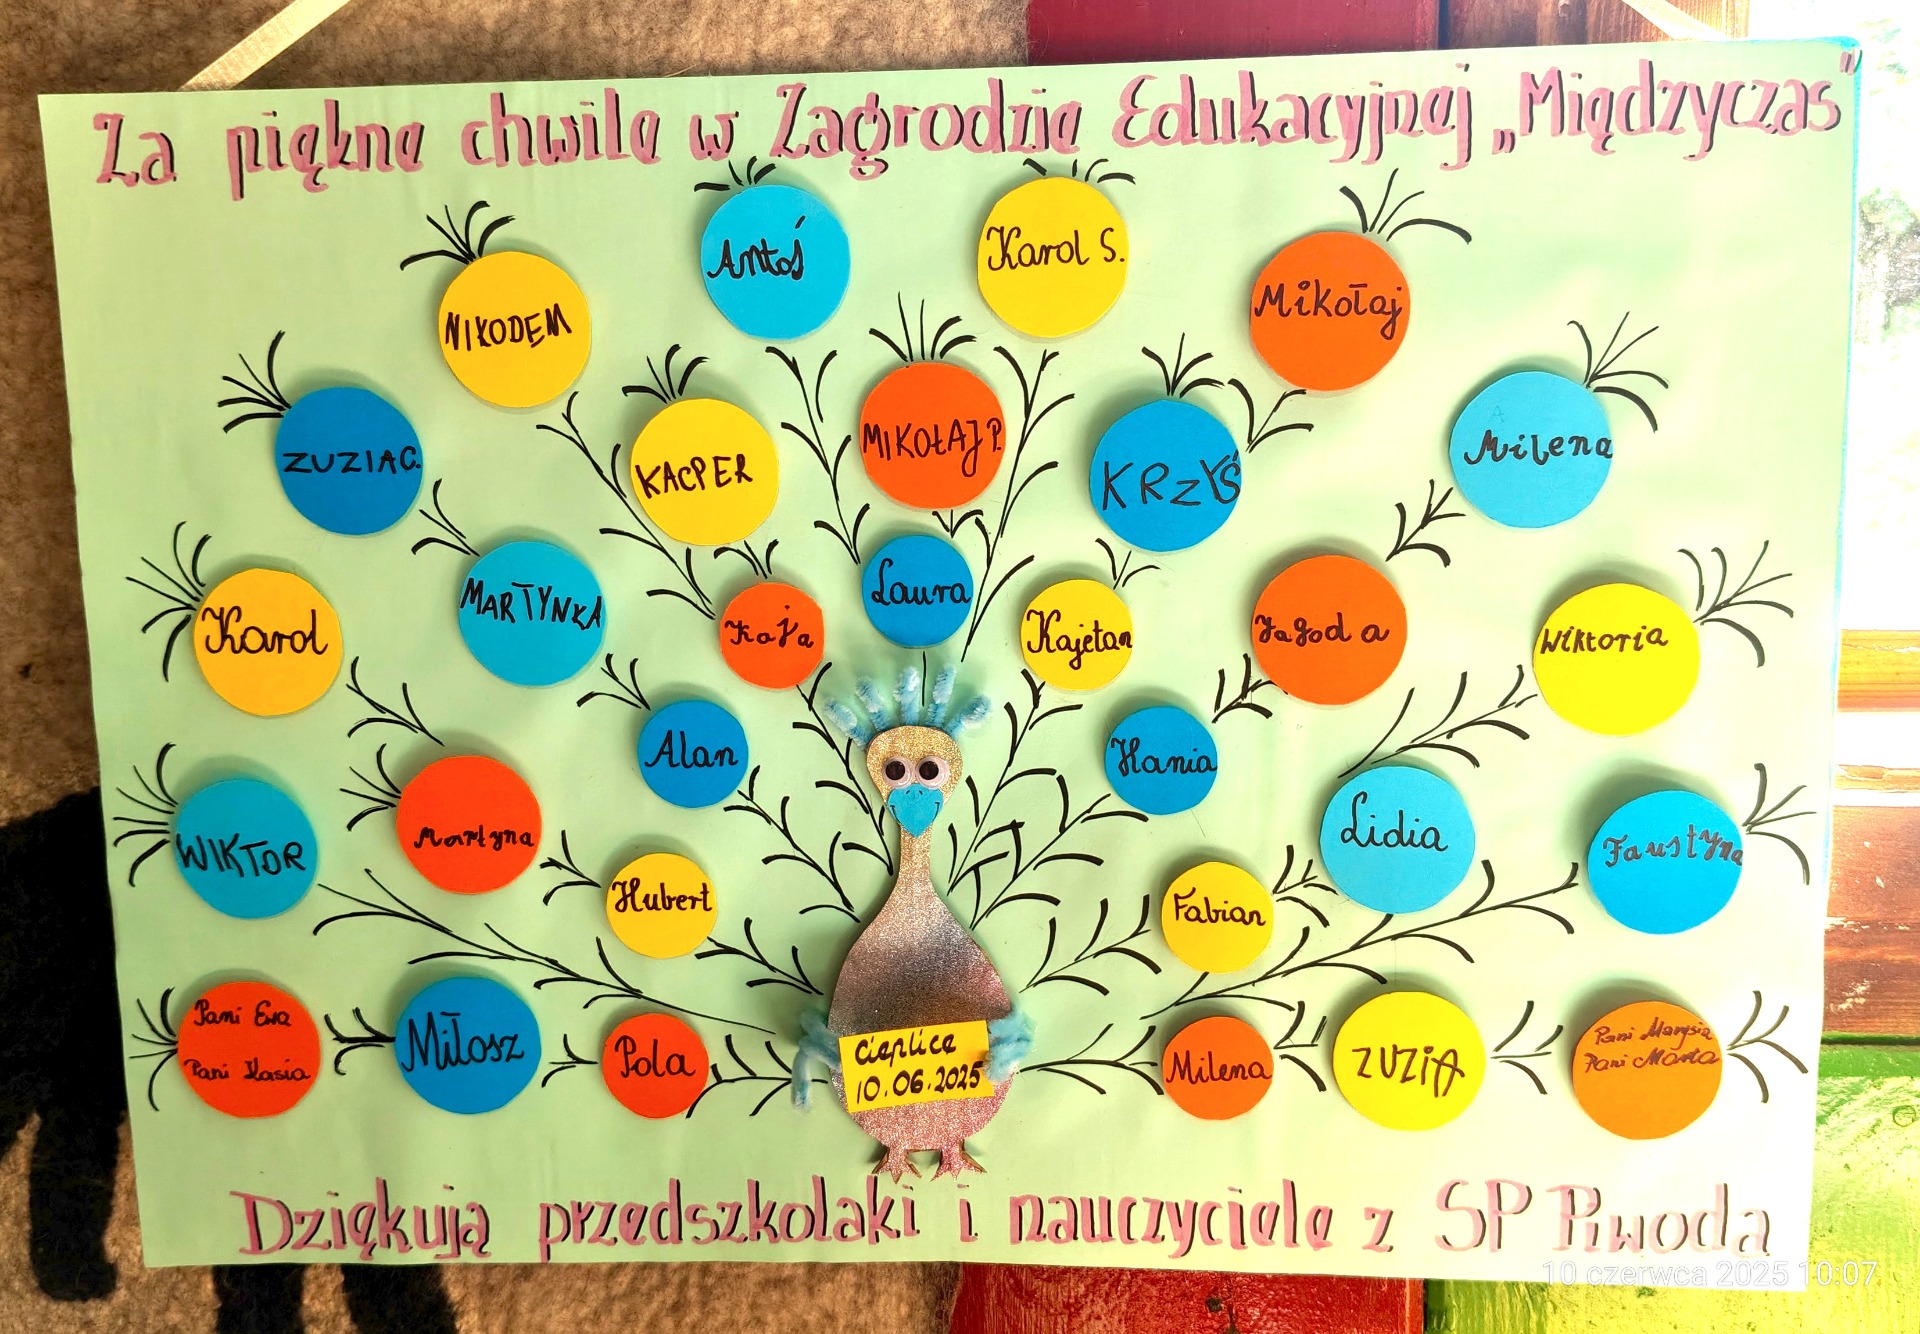 Za piękne chwile w Zagrodzie Edukacyjnej „Międzyczas”
Antoś
Karol S.
Mikołaj
NIKODEM
ZUZIA C.
KACPER
MIKOŁAJ P.
KRZYŚ
Milena
Karol
MARTYNKA
Kaja
Laura
Kajetan
Jagoda
Wiktoria
Alan
Hania
WIKTOR
Martyna
Hubert
Fabian
Lidia
Faustyna
Pani Ewa
Pani Kasia
Miłosz
Pola
Cieplice
10.06.2025
Milena
ZUZIA
Pani Marysia
Pani Marta
Dziękują przedszkolaki i nauczyciele z SP Piwoda
10 czerwca 2025 10:07